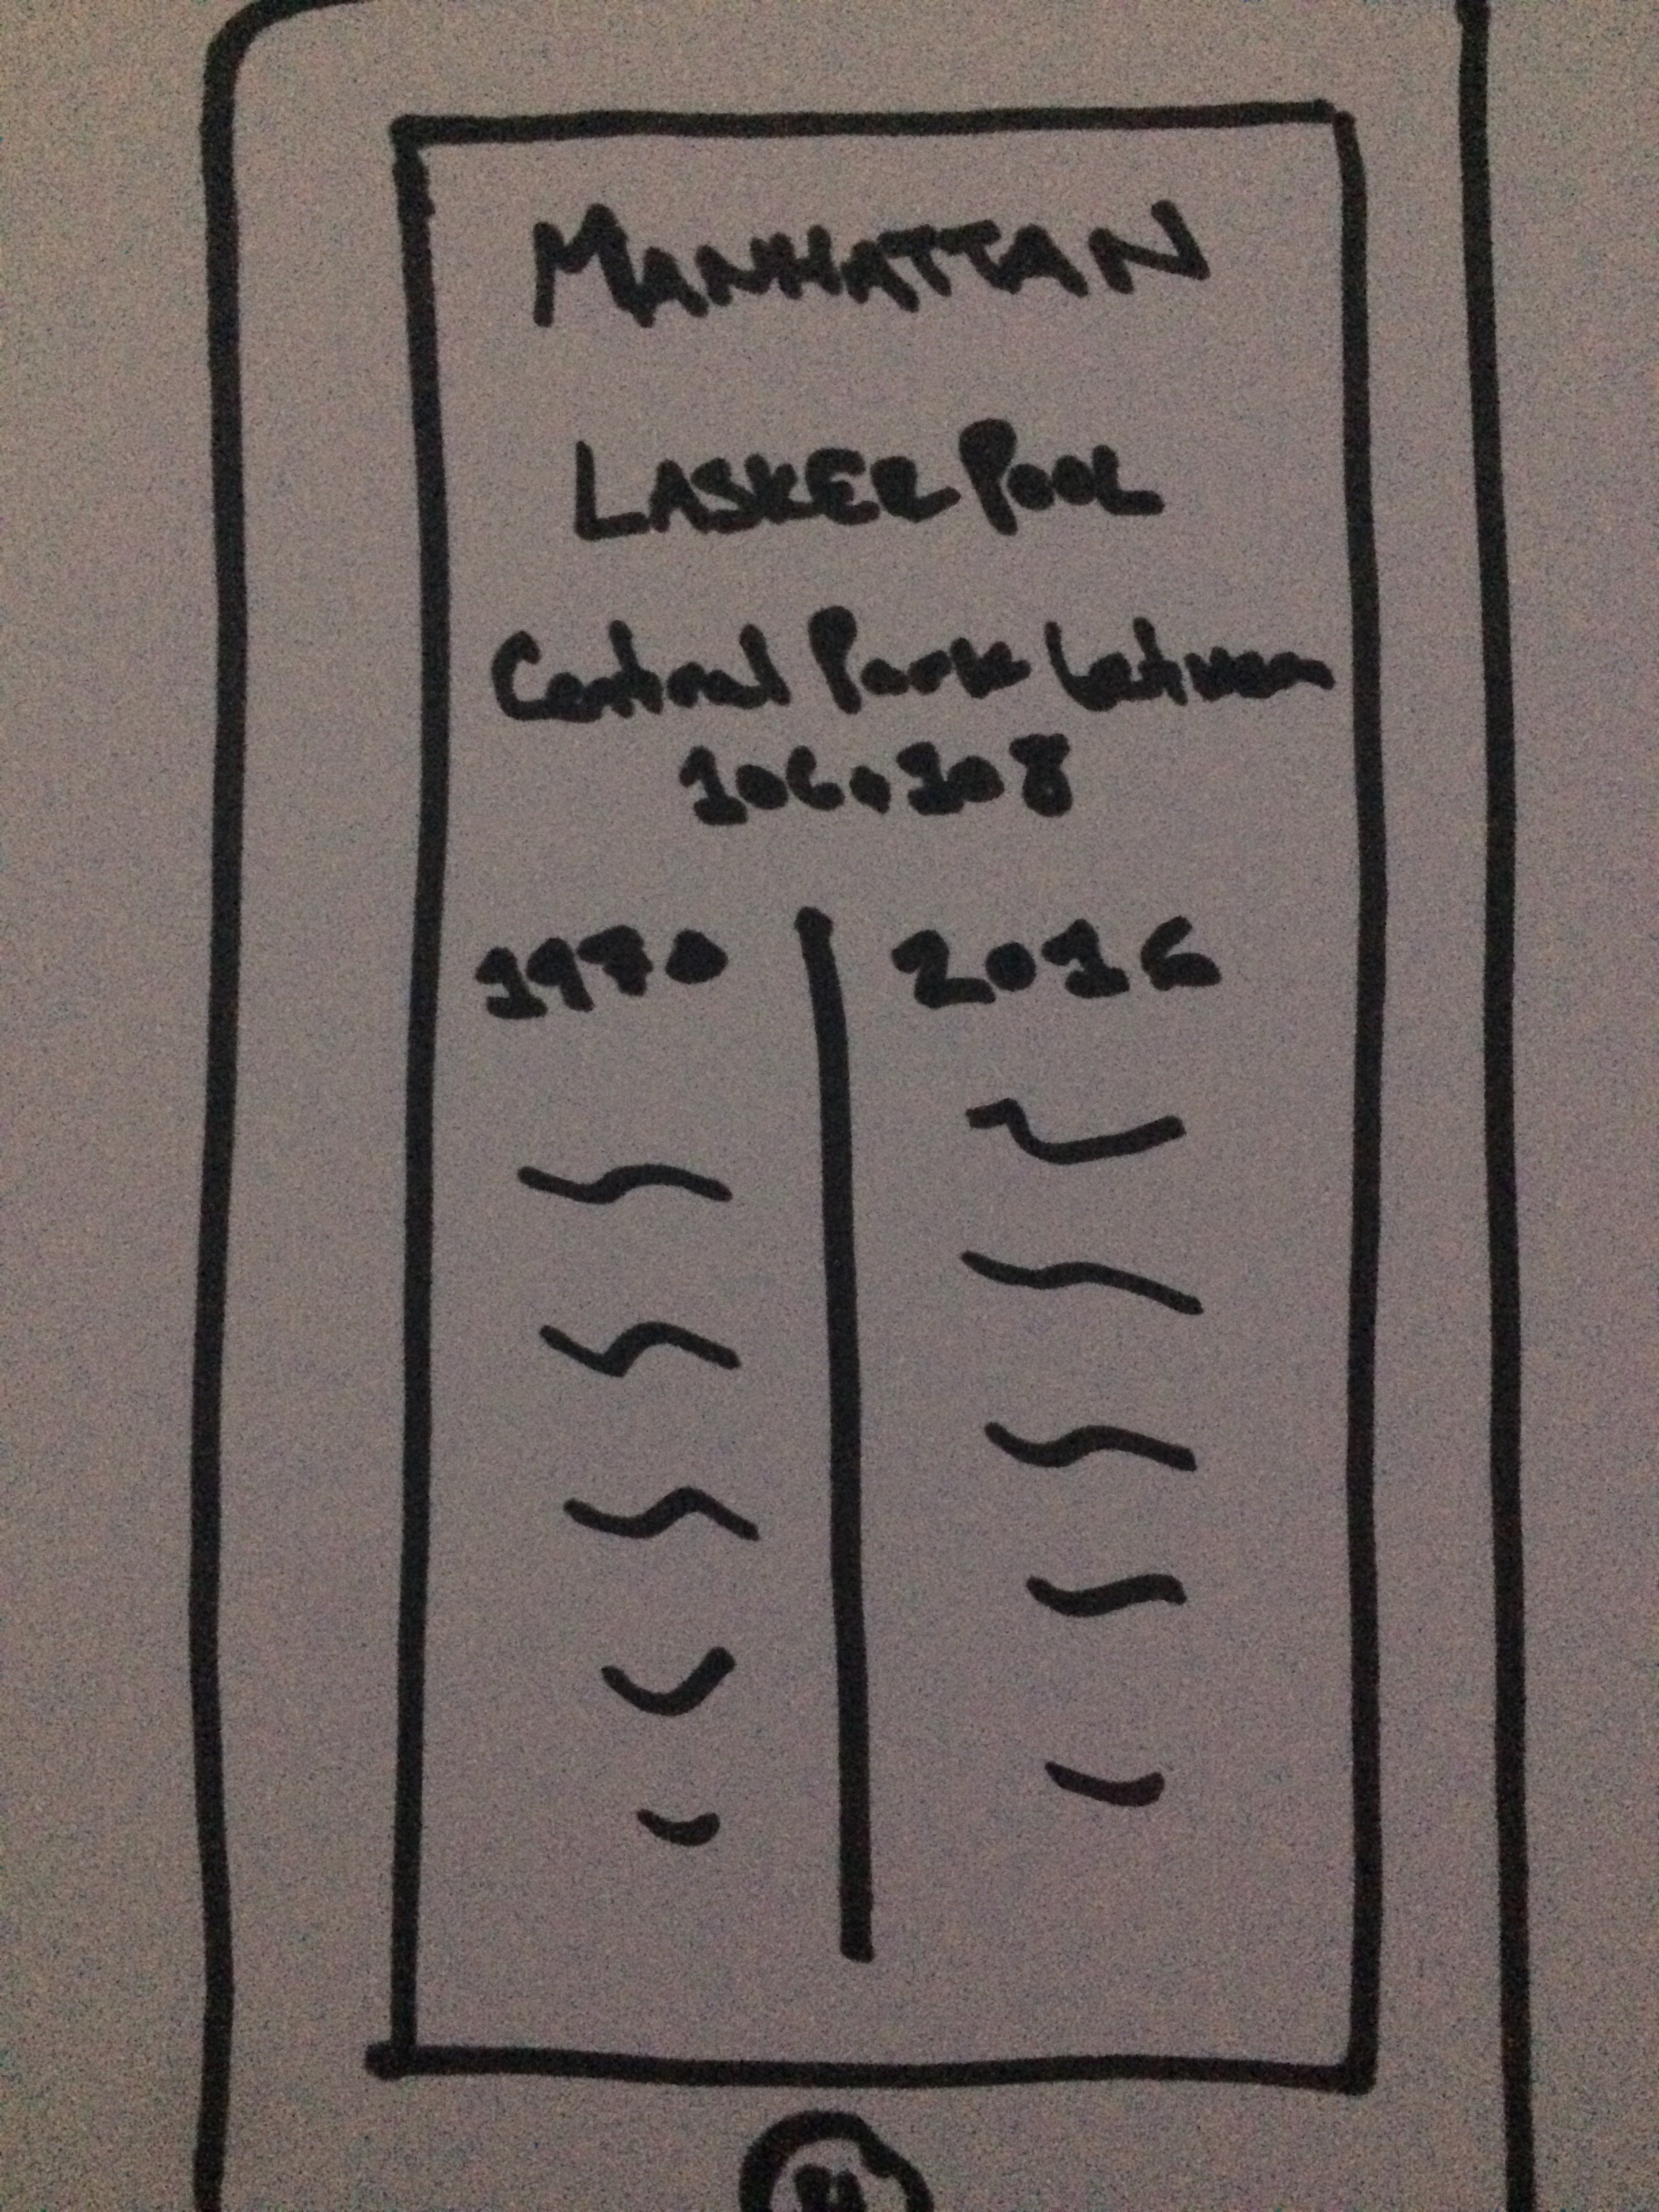 MANHATTAN
LASKER POOL
Central Park between
106 + 108
1970 2016